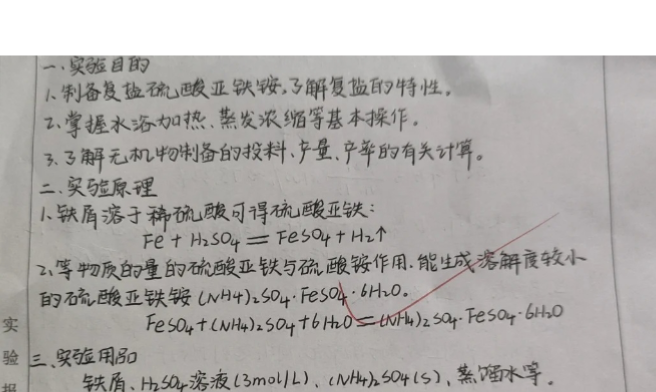 一、实验目的
1、制备复盐硫酸亚铁铵,了解复盐的特性。
2、掌握水浴加热、蒸发浓缩等基本操作。
3、了解无机物制备的投料、产量、产率的有关计算。
二、实验原理
1、铁屑溶于稀硫酸可得硫酸亚铁:
Fe + H₂SO₄ = FeSO₄ + H₂↑
2、等物质的量的硫酸亚铁与硫酸铵作用,能生成溶解度较小
的硫酸亚铁铵 (NH4)₂SO₄·FeSO₄·6H₂O。
FeSO₄+(NH4)₂SO₄+6H₂O=(NH4)₂SO₄·FeSO₄·6H₂O
三、实验用品
铁屑、H₂SO₄溶液(3mol/L)、(NH4)₂SO4(s)、蒸馏水等。
实
验
报